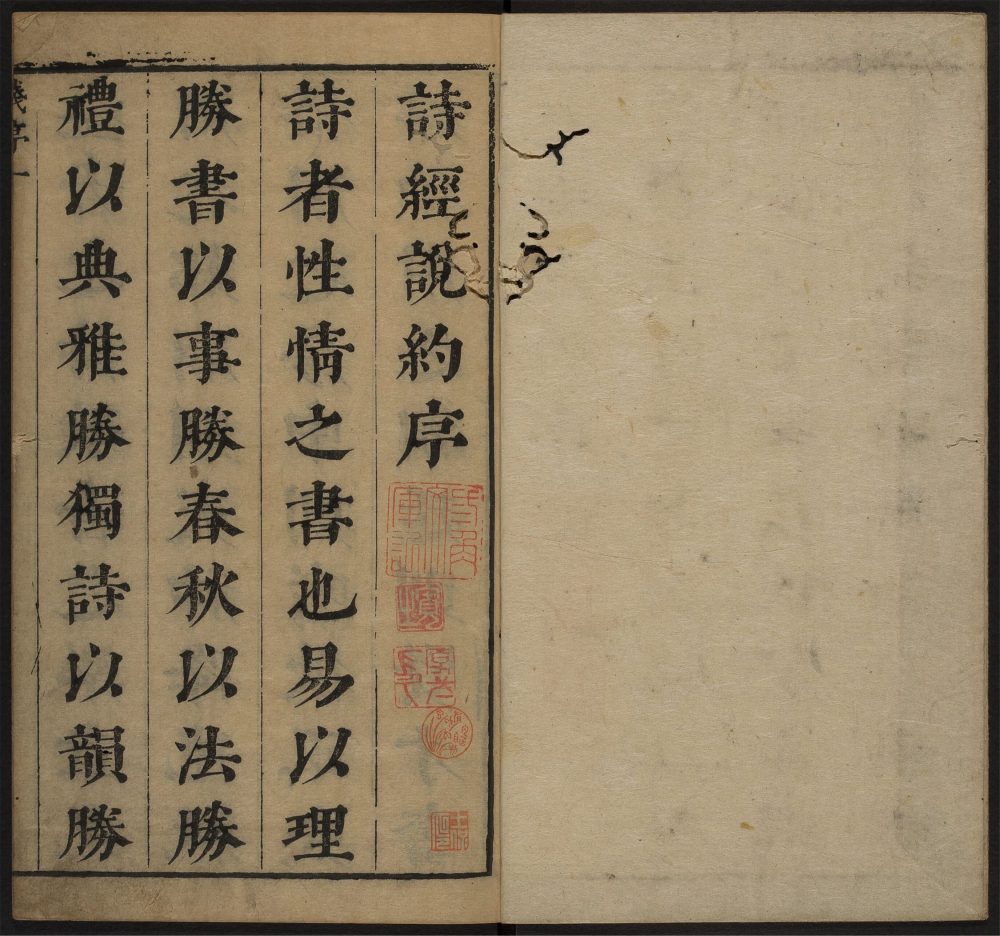 詩經說約序
詩者性情之書也易以理
勝書以事勝春秋以法勝
禮以典雅勝獨詩以韻勝